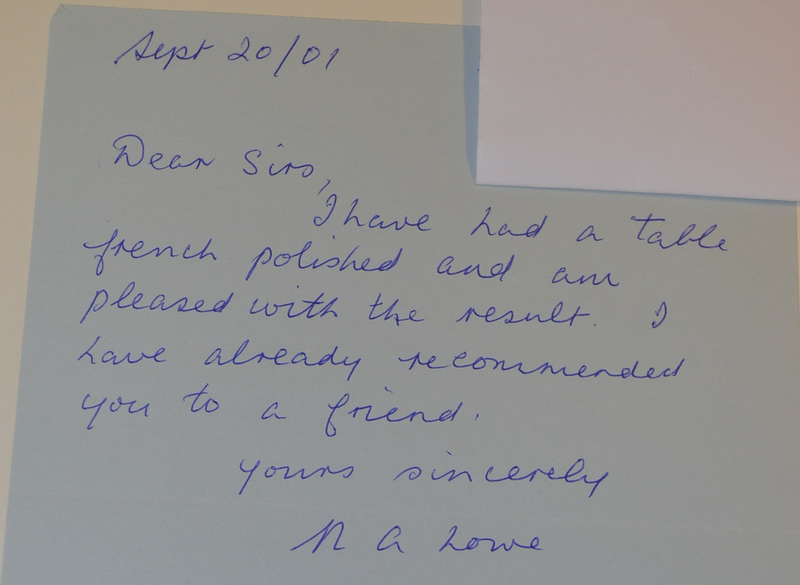 Sept 20/01
Dear Sirs,
I have had a table
french polished and am
pleased with the result. I
have already recommended
you to a friend.
yours sincerely
N A Lowe